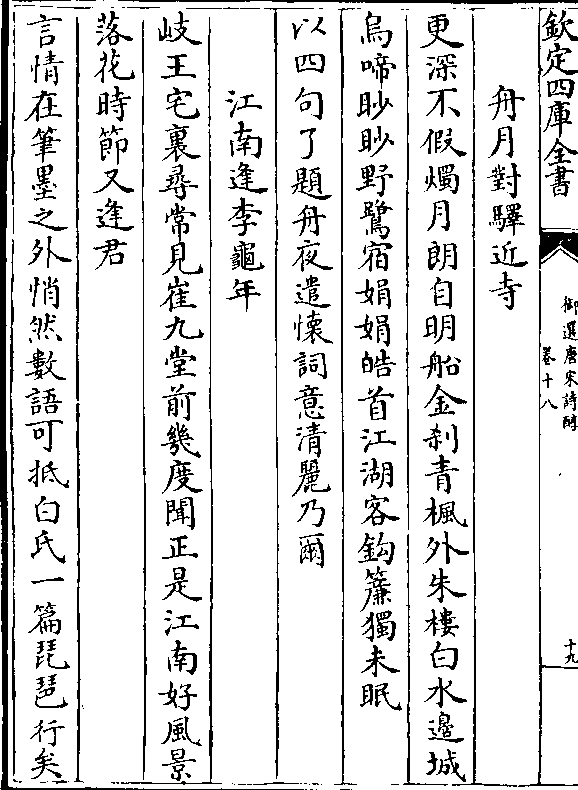 欽定四庫全書
御選唐宋詩醇
卷十八
十九
舟月對驛近寺
更深不假燭月朗自明船金刹青楓外朱樓白水邊城
烏啼眇眇野鷺宿娟娟皓首江湖客鈎簾獨未眠
以四句了題舟夜遣懷詞意清麗乃爾
江南逢李龜年
岐王宅裏尋常見崔九堂前幾度聞正是江南好風景
落花時節又逢君
言情在筆墨之外悄然數語可抵白氏一篇琵琶行矣